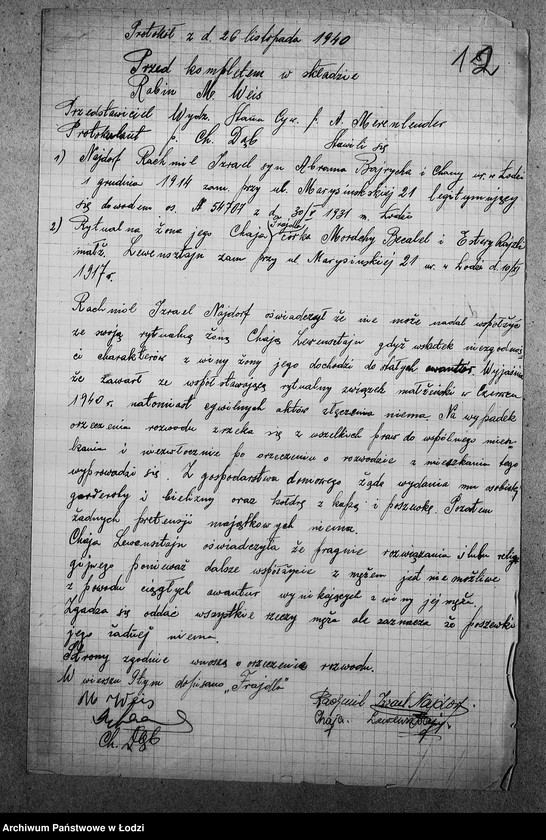 Protokół z d. 26 listopada 1940
12
Przed kompletem w składzie
Rabin M. Weis
Przedstawiciel Wydz. Stanu Cyw. p. A. Merenlender
Protokulant p. Ch. Dąb Stawili się
1) Najdorf Rachmil Izrael syn Abrama Bajrycha i Chany ur. w Łodzi
1 grudnia 1914 zam. przy ul. Marysińskiej 21 legitymujący
się dowodem os. № 54707 z d. 30/V 1931 m. Łodzi
Frajdla
2) Rytualna żona jego Chaja córka Mordchy i Estery
małż. Lewensztajn zam przy ul Marysińskiej 21 ur. w Łodzi d.
1917 r.
Rachmil Izrael Najdorf oświadczył że nie może nadal współżyć
ze swoją rytualną żoną Chają Lewensztajn gdyż wskutek niezgodnoś
ci charakterów z winy żony jego dochodzi do stałych awantur. Wyjaśnia
że zawarł ze współstawającą rytualny związek małżeński w Czerwcu
1940 r. natomiast cywilnych aktów złączenia niema. Na wypadek
orzeczenia rozwodu zrzeka się z wszelkich praw do wspólnego miesz-
kania i niezwłocznie po orzeczeniu o rozwodzie z mieszkania tego
wyprowadzi się. Z gospodarstwa domowego żąda wydania mu osobistej
garderoby i bielizny oraz kołdrą z kapą i poszewkę. Pozatem
żadnych pretensji majątkowych niema.
Chaja Lewensztajn oświadczyła że pragnie rozwiązania ślubu religi
gijnego ponieważ dalsze współżycie z mężem jest niemożliwe
z powodu ciągłych awantur wynikających z winy jej męża.
Zgadza się oddać wszystkie rzeczy męża ale zaznacza że poszewki
jego żadnej niema.
Strony zgodnie wnoszą o orzeczenie rozwodu.
W wierszu 8tym dopisano „Frajdla"
M Weis
Ch. Dąb
Rachmil Izrael Najdorf.
Chaja. Lewensztajn.
Archiwum Państwowe w Łodzi
www.szukajwarchiwach.pl